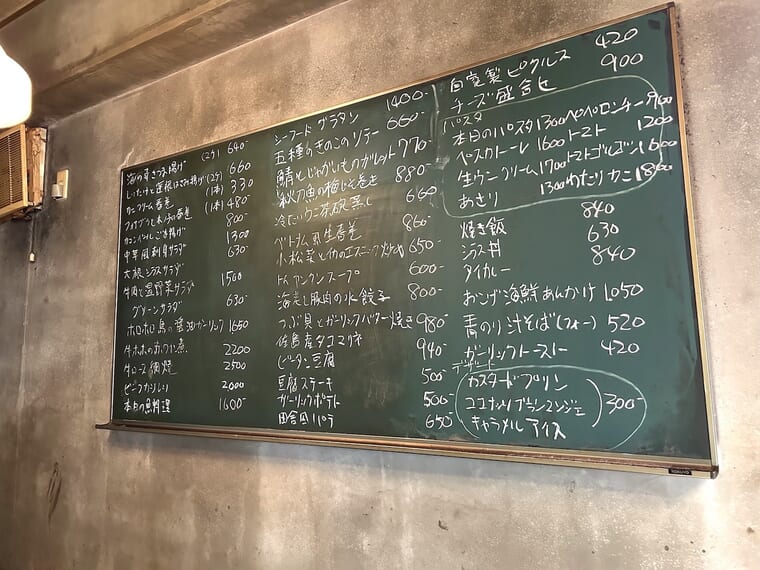 海の幸さつま揚げ (2ケ) 640-
しいたけと蓮根はさみ揚げ (2ケ) 660
カニクリーム春巻 (1本) 330
(1本) 480-
800-
中華風刺身サラダ 1300
大根シラスサラダ 630-
牛肉と温野菜サラダ 1500
グリーンサラダ 630-
ホロホロ鳥の醤油ガーリック 1650
牛ホホの赤ワイン煮 2200
牛ロース網焼 2500
ビーフカツレツ 2000
本日の魚料理 1600-
シーフードグラタン 1400-
五種のきのこのソテー 660-
鯖とじゃがいものガレット 770
秋刀魚の梅じそ巻き 880-
冷たいうに茶碗蒸し 660
ベトナム風生春巻 860-
小松菜とイカのエスニック炒め 650-
トムヤンクンスープ 600-
海老と豚肉の水餃子 800-
つぶ貝とガーリックバター焼き 980-
佐島産タコマリネ 940-
ピータン豆腐 500-
豆腐ステーキ
ガーリックポテト 500-
田舎風パテ 650
自家製ピクルス 420
チーズ盛合せ 900
パスタ
本日のパスタ 1300 ペペロンチーノ 900
ペスカトーレ 1600 トマト 1200
生ウニクリーム 1700 トマトゴルゴンゾーラ 1600
あさり 1300 わたりカニ 1800
焼き飯 840
シラス丼 630
タイカレー 840
おこげ海鮮あんかけ 1050
青のり汁そば(フォー) 520
ガーリックトースト 420
デザート
カスタードプリン
ココナッツブランマンジェ 300-
キャラメルアイス